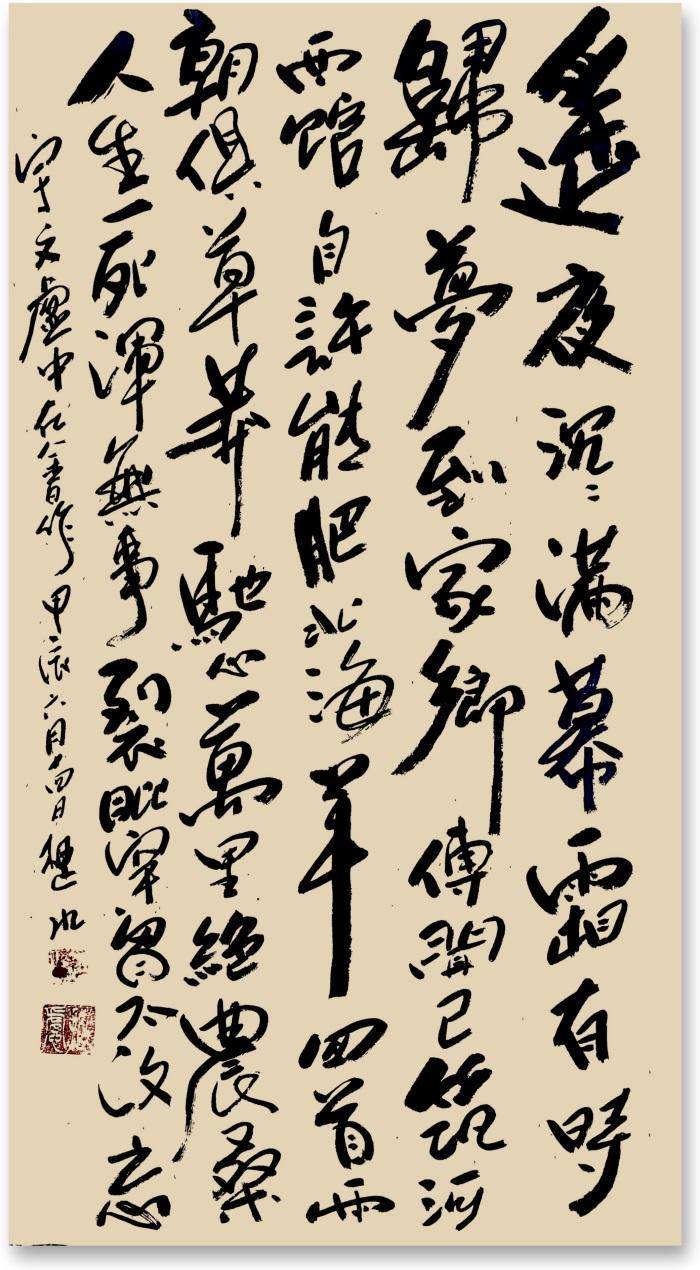 遙夜沉〻滿幕霜有時
歸夢到家鄉傳聞已筑河
西館自許能肥北海羊回首兩
朝俱草莽馳心萬里絕農桑
人生一死渾無事裂眦穿胸不汝忘
宇文虛中在金日作 甲辰六月十四日